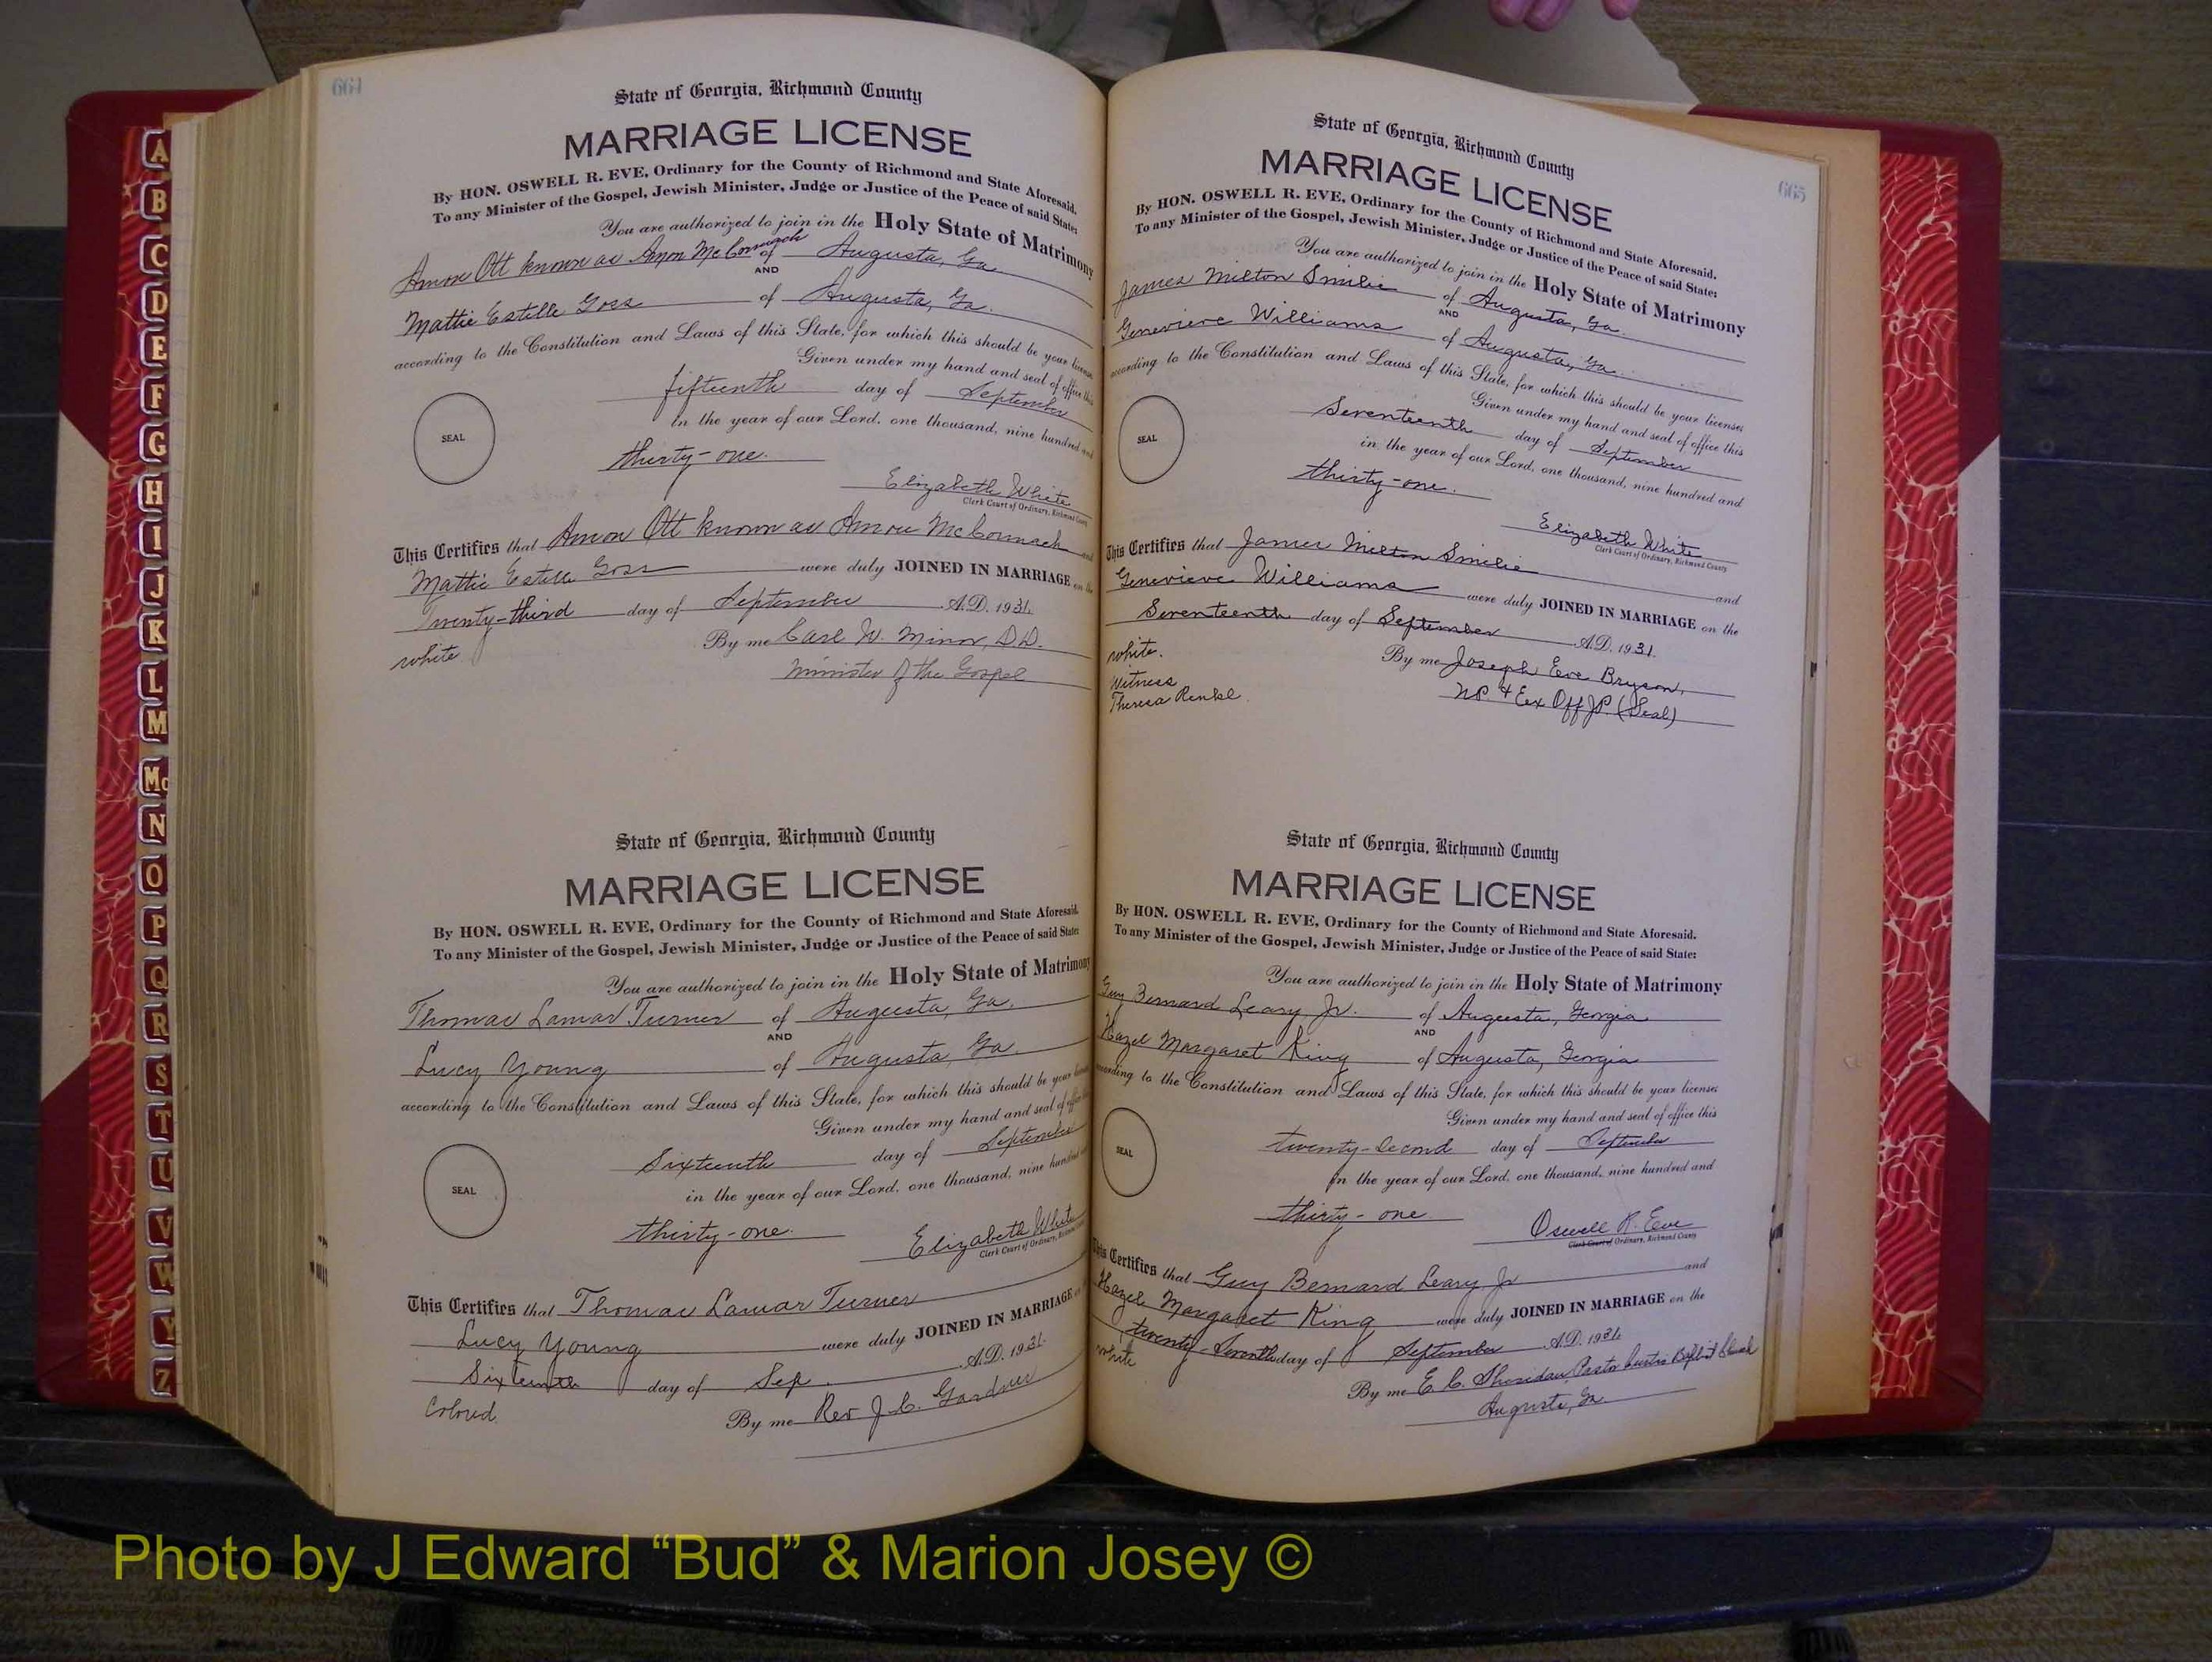 664
State of Georgia, Richmond County
MARRIAGE LICENSE
By HON. OSWELL R. EVE, Ordinary for the County of Richmond and State Aforesaid.
To any Minister of the Gospel, Jewish Minister, Judge or Justice of the Peace of said State:
You are authorized to join in the Holy State of Matrimony
Amon Ott known as Amon McCormach of Augusta, Ga.
AND
Mattie Estelle Goss of Augusta, Ga.
according to the Constitution and Laws of this State, for which this should be your license
Given under my hand and seal of office this
fifteenth day of September
SEAL
in the year of our Lord, one thousand, nine hundred and
thirty-one.
Elizabeth White
Clerk Court of Ordinary, Richmond County
This Certifies that Amon Ott known as Amon McCormach and
Mattie Estelle Goss were duly JOINED IN MARRIAGE on the
Twenty-third day of September A.D. 1931.
white By me Carl W. Minor, D.D.
Minister of the Gospel
State of Georgia, Richmond County
MARRIAGE LICENSE
By HON. OSWELL R. EVE, Ordinary for the County of Richmond and State Aforesaid.
To any Minister of the Gospel, Jewish Minister, Judge or Justice of the Peace of said State:
You are authorized to join in the Holy State of Matrimony
Thomas Lamar Turner of Augusta, Ga.
AND
Lucy Young of Augusta, Ga.
according to the Constitution and Laws of this State, for which this should be your
Given under my hand and seal of office
Sixteenth day of September
SEAL
in the year of our Lord, one thousand, nine hundred
thirty-one.
Elizabeth White
Clerk Court of Ordinary, Richmond
This Certifies that Thomas Lamar Turner
Lucy Young were duly JOINED IN MARRIAGE
Sixteenth day of Sep. A.D. 1931.
Colored. By me Rev J. C. Gardner
665
State of Georgia, Richmond County
MARRIAGE LICENSE
By HON. OSWELL R. EVE, Ordinary for the County of Richmond and State Aforesaid.
To any Minister of the Gospel, Jewish Minister, Judge or Justice of the Peace of said State:
You are authorized to join in the Holy State of Matrimony
James Milton Smilie of Augusta, Ga.
AND
Genevieve Williams of Augusta, Ga.
according to the Constitution and Laws of this State, for which this should be your license:
Given under my hand and seal of office this
Seventeenth day of September
SEAL
in the year of our Lord, one thousand, nine hundred and
thirty-one.
Elizabeth White
Clerk Court of Ordinary, Richmond County
This Certifies that James Milton Smilie
Genevieve Williams and
were duly JOINED IN MARRIAGE on the
Seventeenth day of September A.D. 1931.
white. By me Joseph Eve Bryson,
Witness N.P. & Ex Off J.P. (Seal)
Theresa Renkl
State of Georgia, Richmond County
MARRIAGE LICENSE
By HON. OSWELL R. EVE, Ordinary for the County of Richmond and State Aforesaid.
To any Minister of the Gospel, Jewish Minister, Judge or Justice of the Peace of said State:
You are authorized to join in the Holy State of Matrimony
Guy Bernard Leary, Jr. of Augusta, Georgia
AND
Hazel Margaret King of Augusta, Georgia
according to the Constitution and Laws of this State, for which this should be your license:
Given under my hand and seal of office this
twenty-second day of September
SEAL
in the year of our Lord, one thousand, nine hundred and
thirty-one
Oswell R. Eve
Clerk Court of Ordinary, Richmond County
This Certifies that Guy Bernard Leary Jr and
Hazel Margaret King were duly JOINED IN MARRIAGE on the
twenty-Seventh day of September A.D. 1931.
white By me E. C. Sheridan, Pastor Curtis Baptist Church
Augusta, Ga.
A
B
C
D
E
F
G
H
I
J
K
L
M
Mc
N
O
P
Q
R
S
T
U
V
W
Y
Z
Photo by J Edward “Bud” & Marion Josey ©